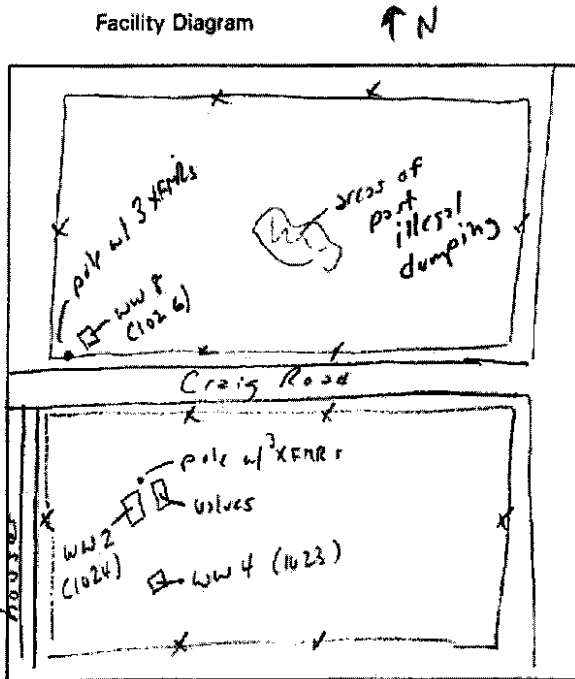 Facility Diagram
↑ N
pole w/ 3 XFMRs
areas of
past
illegal
dumping
WW 8
(1026)
Craig Road
pole w/ 3 XFMRs
valves
WW2
(1024)
WW 4 (1023)
houses